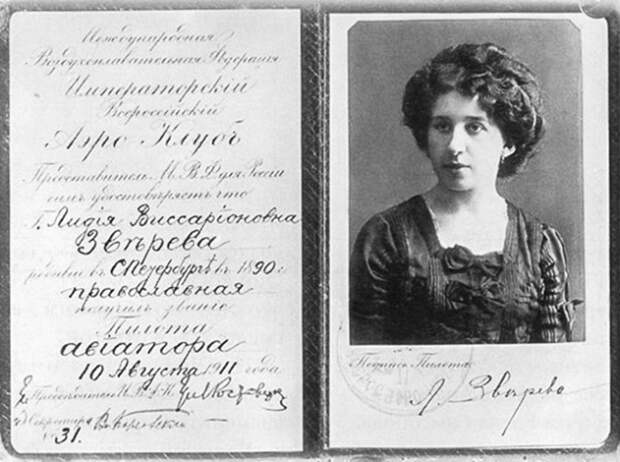 Международная
Воздухоплавательная Ѳедерація
Императорскій
Всероссійскій
Аэро Клубъ
Представитель М.В.Ф для Россіи
симъ удостовѣряетъ что
Г. Лидія Виссаріоновна
Звѣрева
родивш въ С.Петербургѣ въ 1890 г
православная
получилъ званіе
Пилота
авіатора
10 Августа 1911 года
Предсѣдатель И.В.А.К.
Секретарь
31.
Подпись Пилота
Л. Звѣрева